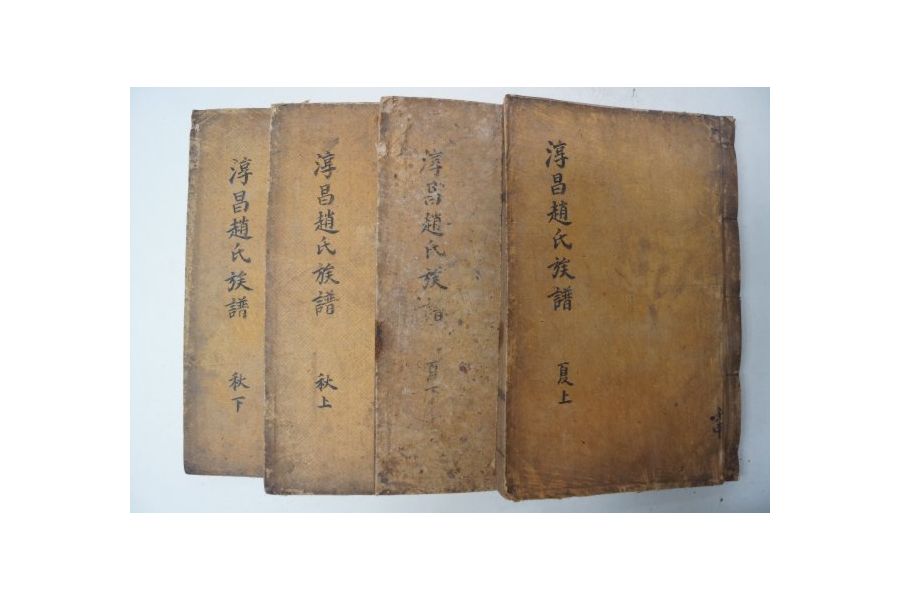 淳昌趙氏族譜 夏上
淳昌趙氏族譜 夏下
淳昌趙氏族譜 秋上
淳昌趙氏族譜 秋下